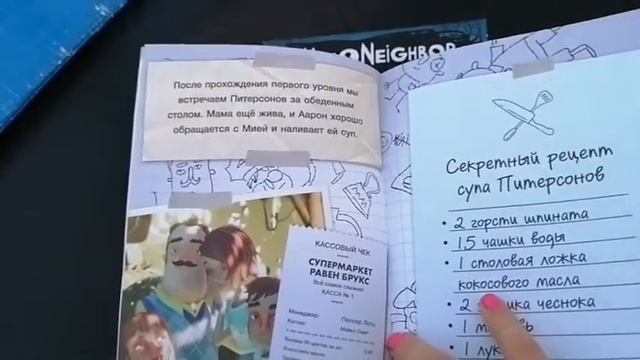 NEIGHBOR
После прохождения первого уровня мы
встречаем Питерсонов за обеденным
столом. Мама ещё жива, и Аарон хорошо
обращается с Мией и наливает ей суп.
КАССОВЫЙ ЧЕК
СУПЕРМАРКЕТ
РАВЕН БРУКС
Всё самое свежее!
КАССА № 1
Менеджер
Кассир
Секретный рецепт
супа Питерсонов
• 2 горсти шпината
• 1,5 чашки воды
• 1 столовая ложка
кокосового масла
• 2 чеснока
• 1
• 1 лук